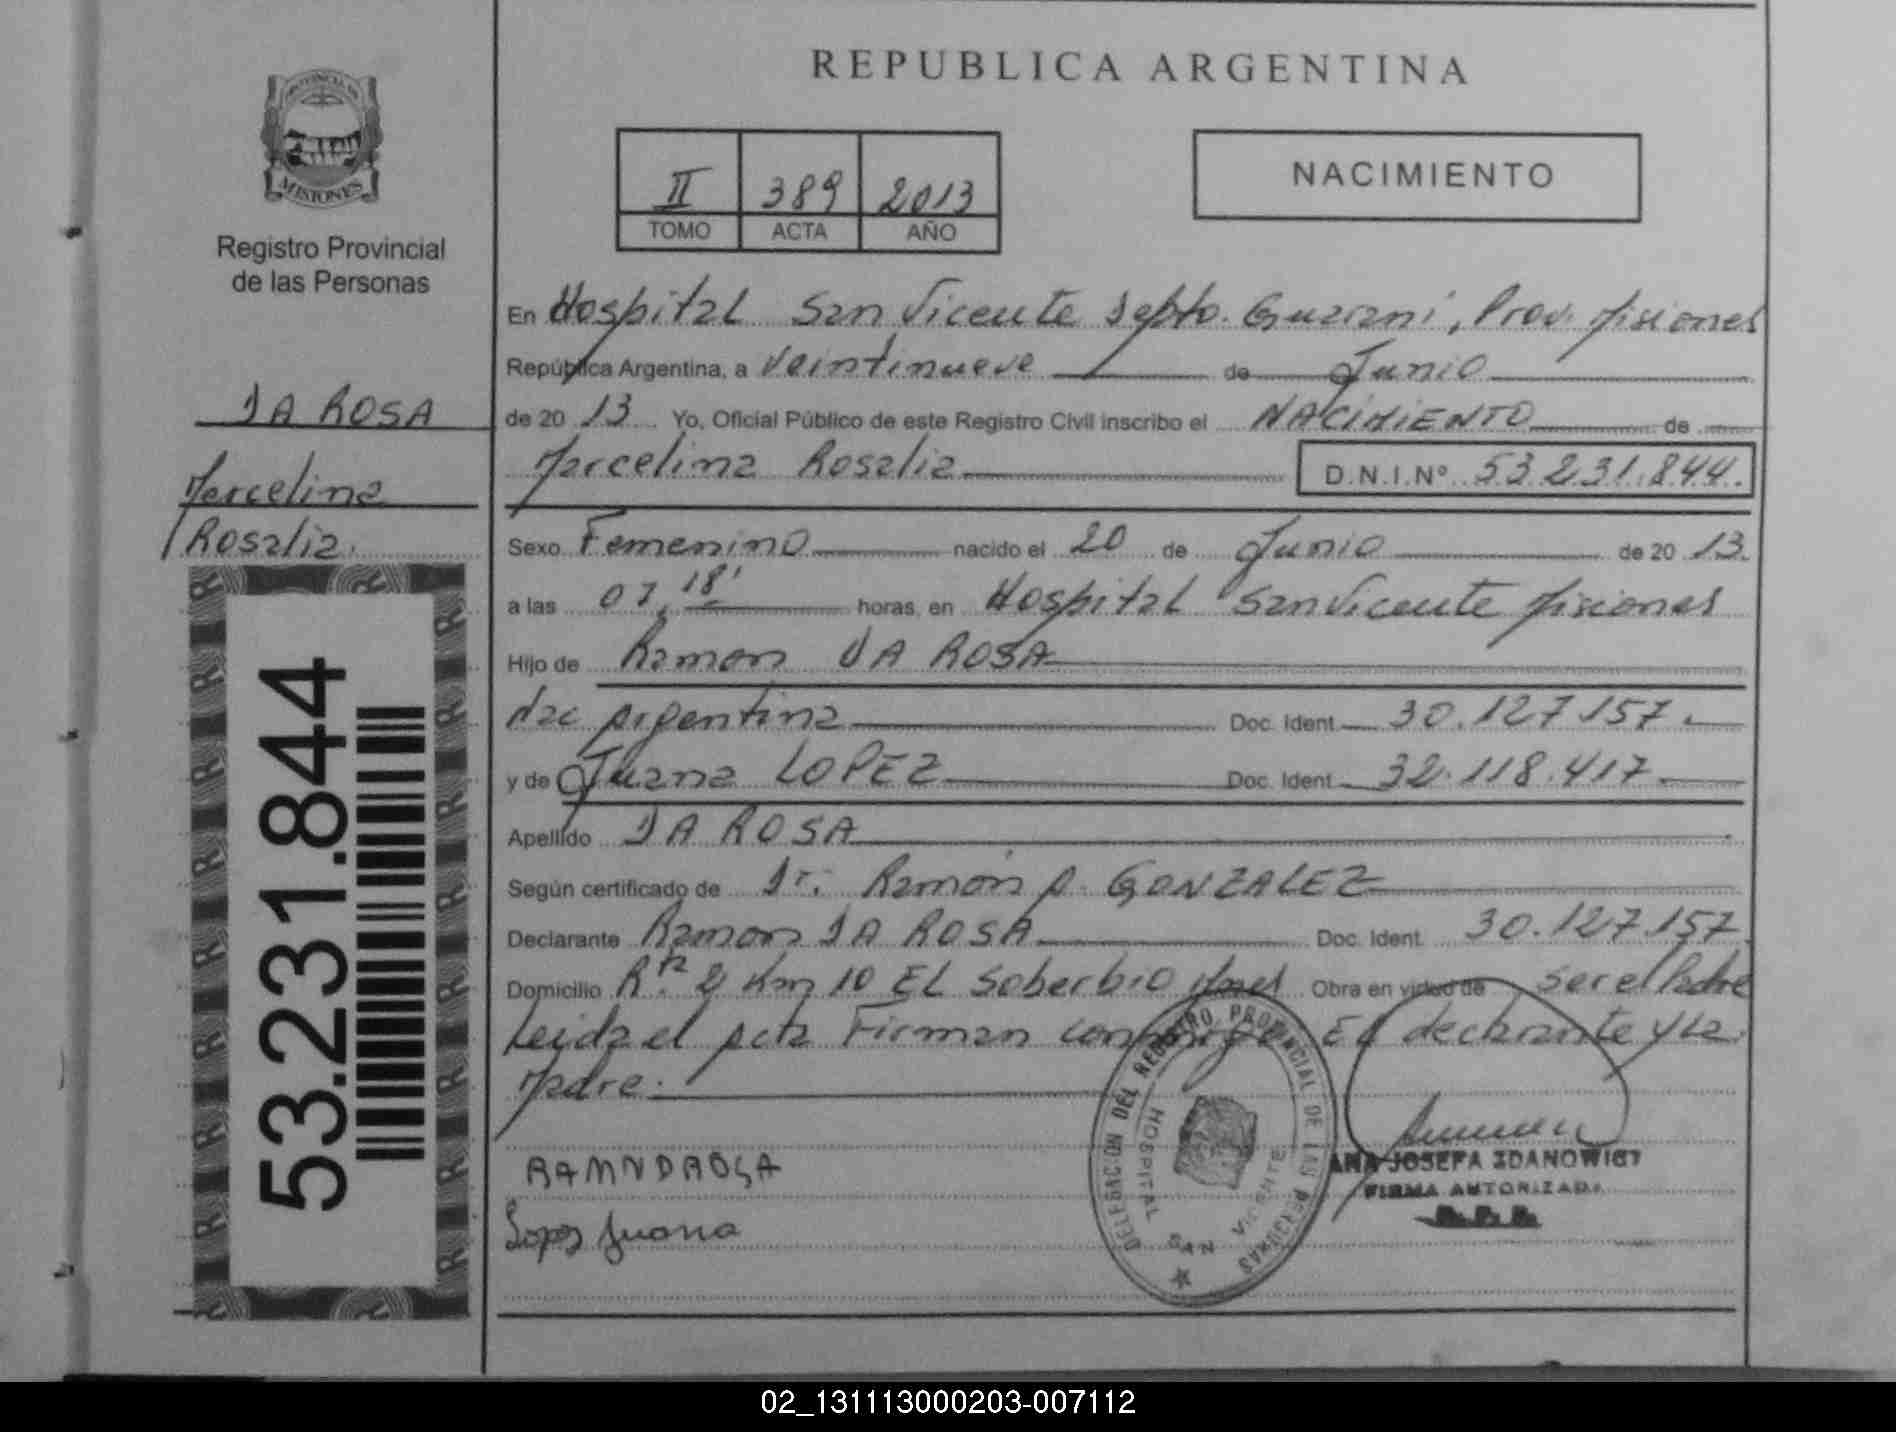 REPUBLICA ARGENTINA
PROVINCIA DE
MISIONES
Registro Provincial
de las Personas
II 389 2013
TOMO ACTA AÑO
NACIMIENTO
DA ROSA
Marcelina
Rosalia.
53.231.844
En Hospital San Vicente Depto. Guarani, Prov. Misiones
República Argentina, a Veintinueve de Junio
de 20 13 Yo, Oficial Público de este Registro Civil inscribo el NACIMIENTO de
Marcelina Rosalia D.N.I.Nº 53.231.844.
Sexo Femenino nacido el 20 de Junio de 20 13.
a las 07,18' horas, en Hospital San Vicente Misiones
Hijo de Ramon DA ROSA
Nac Argentina Doc. Ident 30.127.157.
y de Juana LOPEZ Doc. Ident 32.118.417
Apellido DA ROSA
Según certificado de Dr. Ramón A. GONZALEZ
Declarante Ramon DA ROSA Doc. Ident. 30.127.157
Domicilio Rta 2 Km 10 EL Soberbio Mnes Obra en virtud de Ser el Padre
Leida el Acta Firman conmigo El declarante y La
Madre.
RAMNDAOSA
Lopez Juana
DELEGACION DEL REGISTRO PROVINCIAL DE LAS PERSONAS
HOSPITAL SAN VICENTE
ANA JOSEFA ZDANOWICZ
FIRMA AUTORIZADA
02_131113000203-007112